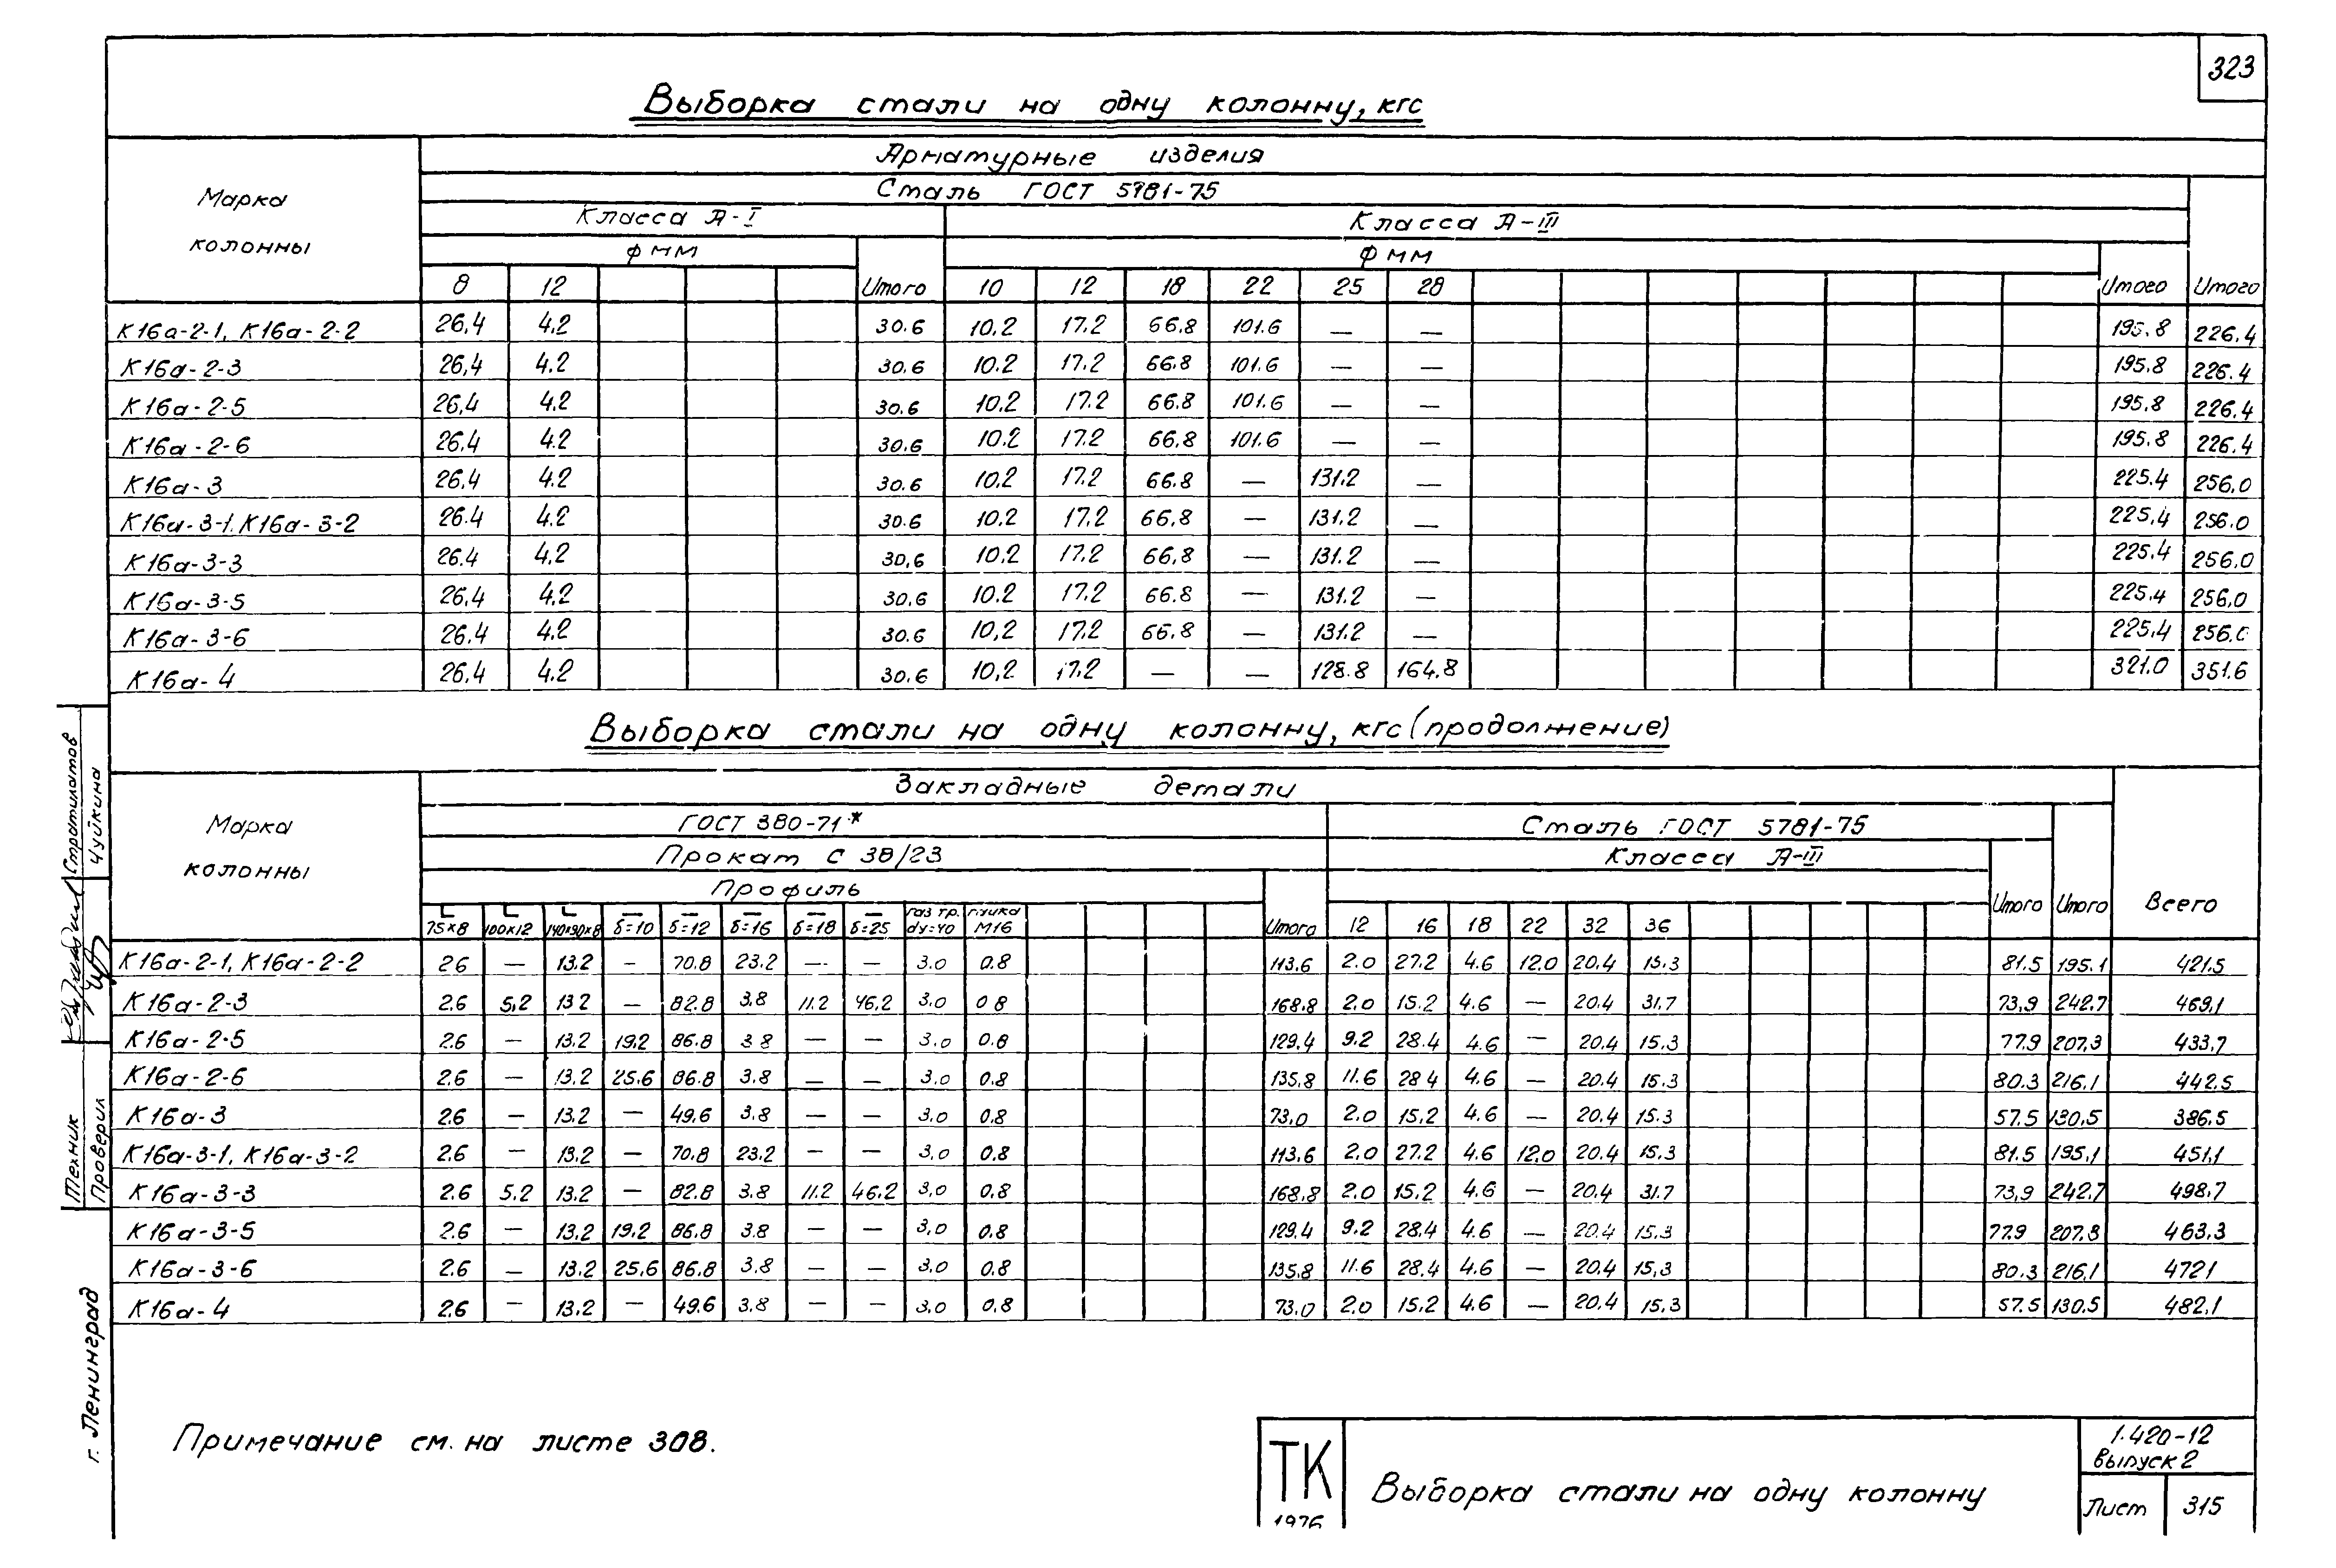 323
Выборка стали на одну колонну, кгс
Марка колонны
Арматурные изделия
Сталь ГОСТ 5781-75
Класса А-I Класса А-III
Ф мм Ф мм
8 12 Итого 10 12 18 22 25 28 Итого Итого
К16а-2-1, К16а-2-2 26,4 4.2 30.6 10.2 17.2 66.8 101.6 — — 195.8 226.4
К16а-2-3 26,4 4.2 30.6 10.2 17.2 66.8 101.6 — — 195.8 226.4
К16а-2-5 26,4 4.2 30.6 10.2 17.2 66.8 101.6 — — 195.8 226.4
К16а-2-6 26,4 4.2 30.6 10.2 17.2 66,8 101.6 — — 195.8 226.4
К16а-3 26,4 4.2 30.6 10.2 17.2 66.8 — 131.2 — 225.4 256.0
К16а-3-1. К16а-3-2 26.4 4.2 30.6 10.2 17.2 66,8 — 131.2 — 225,4 256.0
К16а-3-3 26.4 4,2 30,6 10.2 17.2 66,8 — 131.2 — 225.4 256.0
К16а-3-5 26,4 4.2 30.6 10.2 17.2 66.8 — 131.2 — 225,4 256,0
К16а-3-6 26.4 4.2 30.6 10,2 17.2 66,8 — 131.2 — 225,4 256.0
К16а-4 26,4 4.2 30.6 10,2 17.2 — — 128.8 164,8 321.0 351.6
Выборка стали на одну колонну, кгс (продолжение)
Марка колонны
Закладные детали
ГОСТ 380-71* Сталь ГОСТ 5781-75
Прокат С 38/23 Класса А-III
Профиль Итого Итого Всего
75×8 100×12 140×90×8 δ=10 δ=12 δ=16 δ=18 δ=25 газ тр. dу=40 гайка М16 Итого 12 16 18 22 32 36
К16а-2-1, К16а-2-2 2.6 — 13.2 — 70.8 23.2 — — 3.0 0.8 113.6 2.0 27.2 4.6 12.0 20.4 15.3 81.5 195.1 421.5
К16а-2-3 2.6 5,2 13 2 — 82.8 3.8 11.2 46.2 3.0 0 8 168.8 2.0 15.2 4.6 — 20.4 31.7 73,9 242.7 469,1
К16а-2-5 2.6 — 13.2 19.2 86.8 3 8 — — 3.0 0.8 129.4 9.2 28.4 4.6 — 20.4 15.3 77.9 207.3 433,7
К16а-2-6 2.6 — 13.2 25.6 86.8 3.8 — — 3.0 0.8 135.8 11.6 28 4 4.6 — 20.4 15.3 80.3 216.1 442.5
К16а-3 2.6 — 13.2 — 49.6 3.8 — — 3.0 0.8 73,0 2.0 15,2 4.6 — 20.4 15.3 57.5 130,5 386.5
К16а-3-1, К16а-3-2 2.6 — 13.2 — 70.8 23.2 — — 3.0 0.8 113.6 2.0 27.2 4.6 12.0 20.4 15.3 81.5 195,1 451,1
К16а-3-3 2.6 5.2 13.2 — 82.8 3.8 11.2 46.2 3,0 0.8 168,8 2.0 15,2 4.6 — 20.4 31.7 73,9 242.7 498,7
К16а-3-5 2.6 — 13.2 19.2 86.8 3.8 — — 3,0 0.8 129.4 9.2 28.4 4.6 — 20.4 15.3 77.9 207.3 463.3
К16а-3-6 2.6 — 13.2 25.6 86.8 3.8 — — 3.0 0.8 135.8 11.6 28.4 4.6 — 20.4 15,3 80.3 216,1 472 1
К16а-4 2.6 — 13.2 — 49.6 3.8 — — 3.0 0.8 73.0 2.0 15.2 4.6 — 20.4 15.3 57.5 130.5 482.1
Техник Стратилатов
Проверил Чуйкина
г. Ленинград
Примечание см. на листе 308.
ТК
1976
Выборка стали на одну колонну
1.420-12
выпуск 2
Лист 315